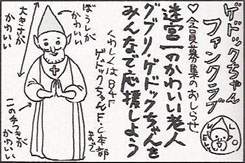 ゲドックちゃん
ファンクラブ
♡会員募集のおしらせ
迷宮一のかわいい老人
グブリ・ゲドックちゃんを
みんなで応援しよう
くわしくはB8F
ゲドックちゃんF.C本部
まで
ぼうしが
かわいい
大きさが
かわいい
この手つきが
かわいい